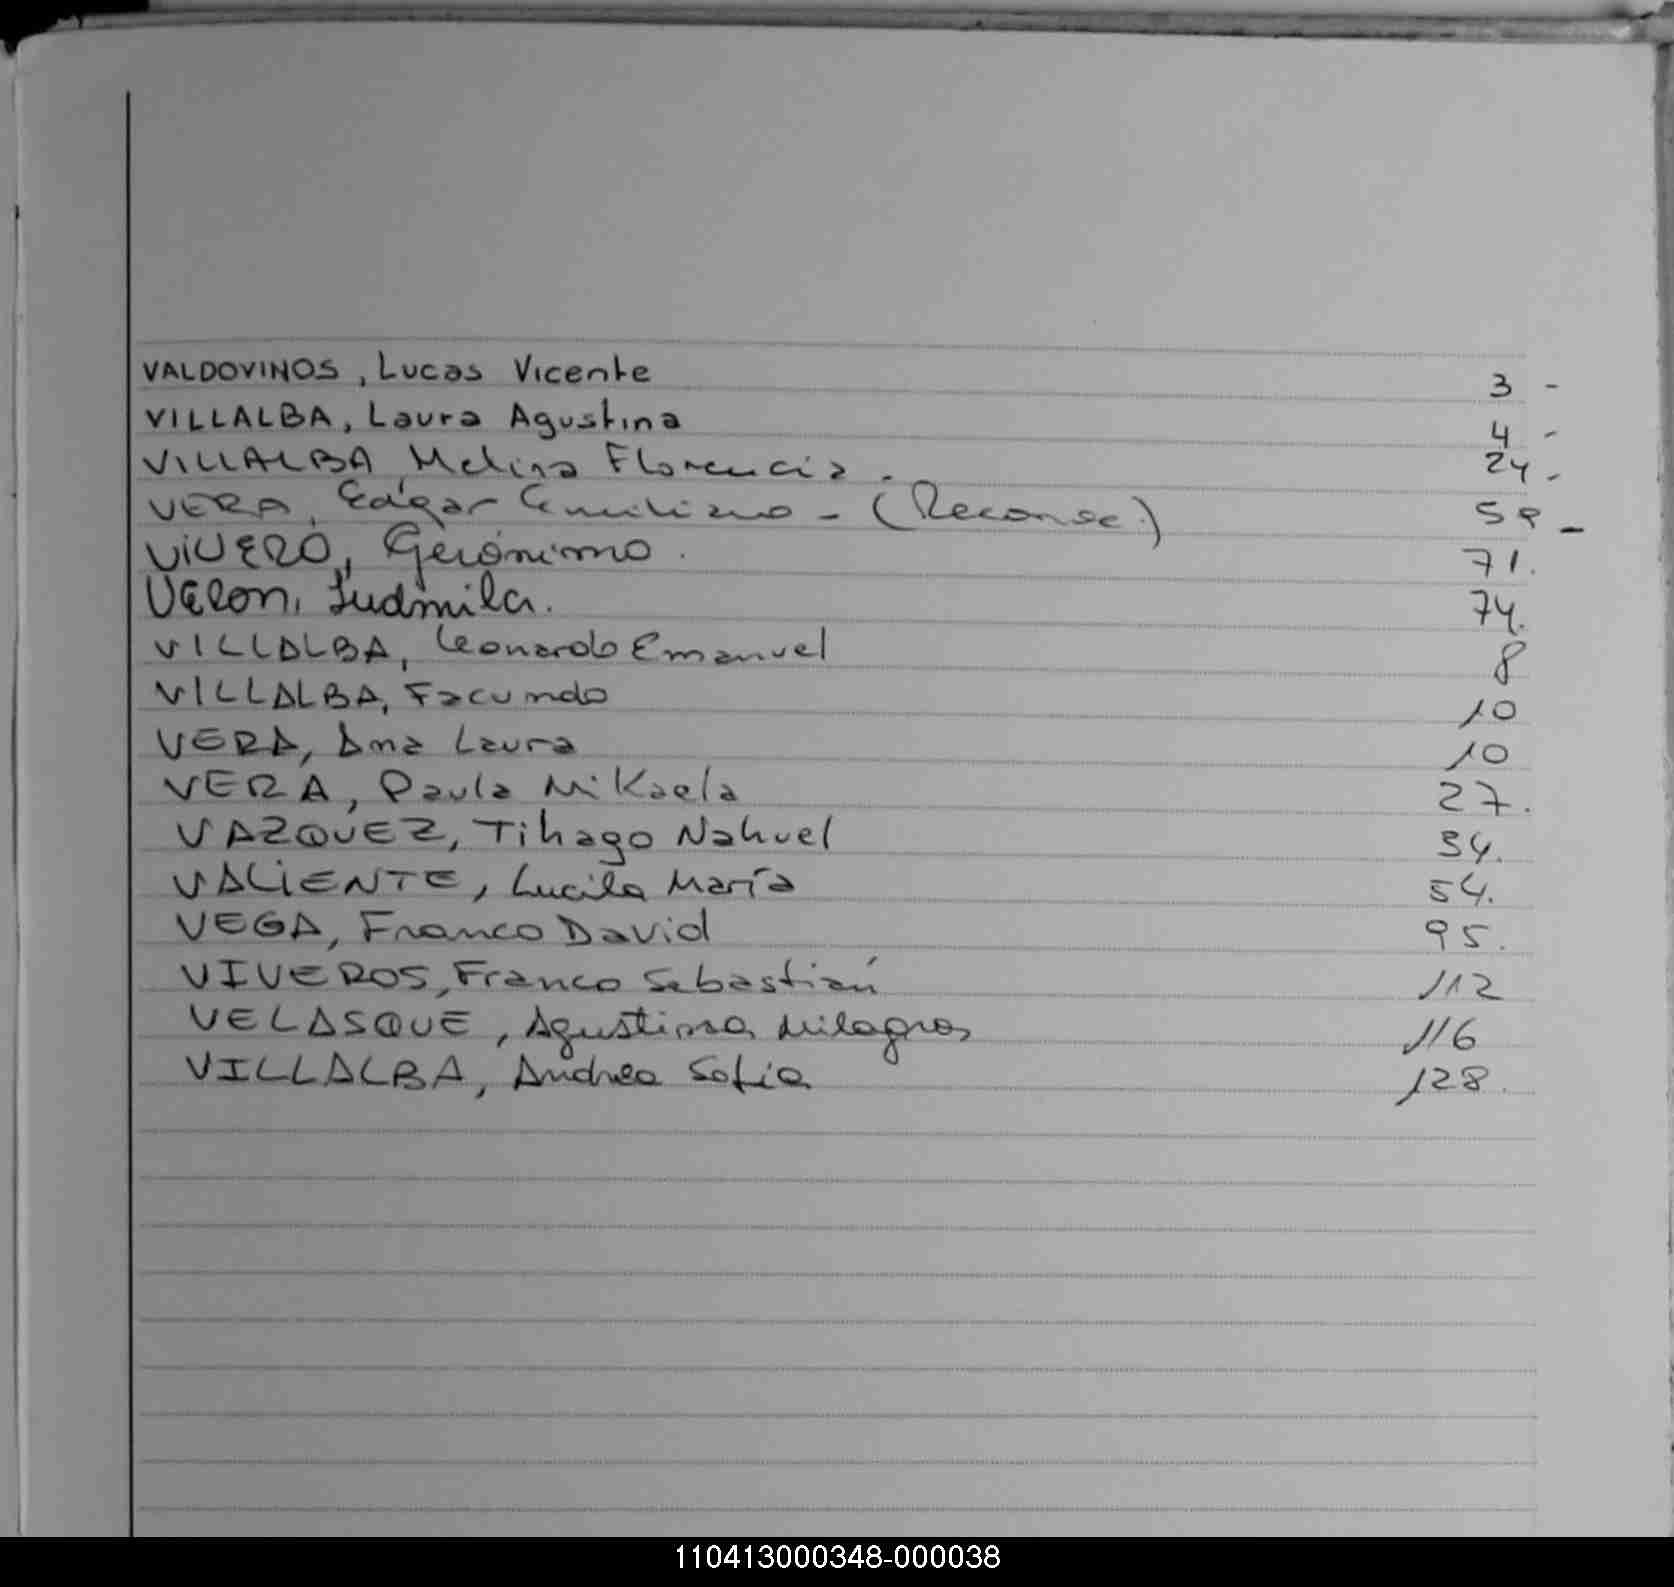 VALDOVINOS, Lucas Vicente 3 -
VILLALBA, Laura Agustina 4 -
VILLALBA, Melina Florencia - 24 -
VERA, Edgar Emiliano - (Reconoc.) 59 -
VIVERO, Gerónimo. 71.
VERON, Ludmila. 74.
VILLALBA, Leonardo Emanuel 8
VILLALBA, Facundo 10
VERA, Ana Laura 10
VERA, Paula Mikaela 27.
VAZQUEZ, Tihago Nahuel 34.
VALIENTE, Lucila María 54.
VEGA, Franco David 95.
VIVEROS, Franco Sebastián 112
VELASQUE, Agustina Milagros 116
VILLALBA, Andrea Sofia 128.
110413000348-000038